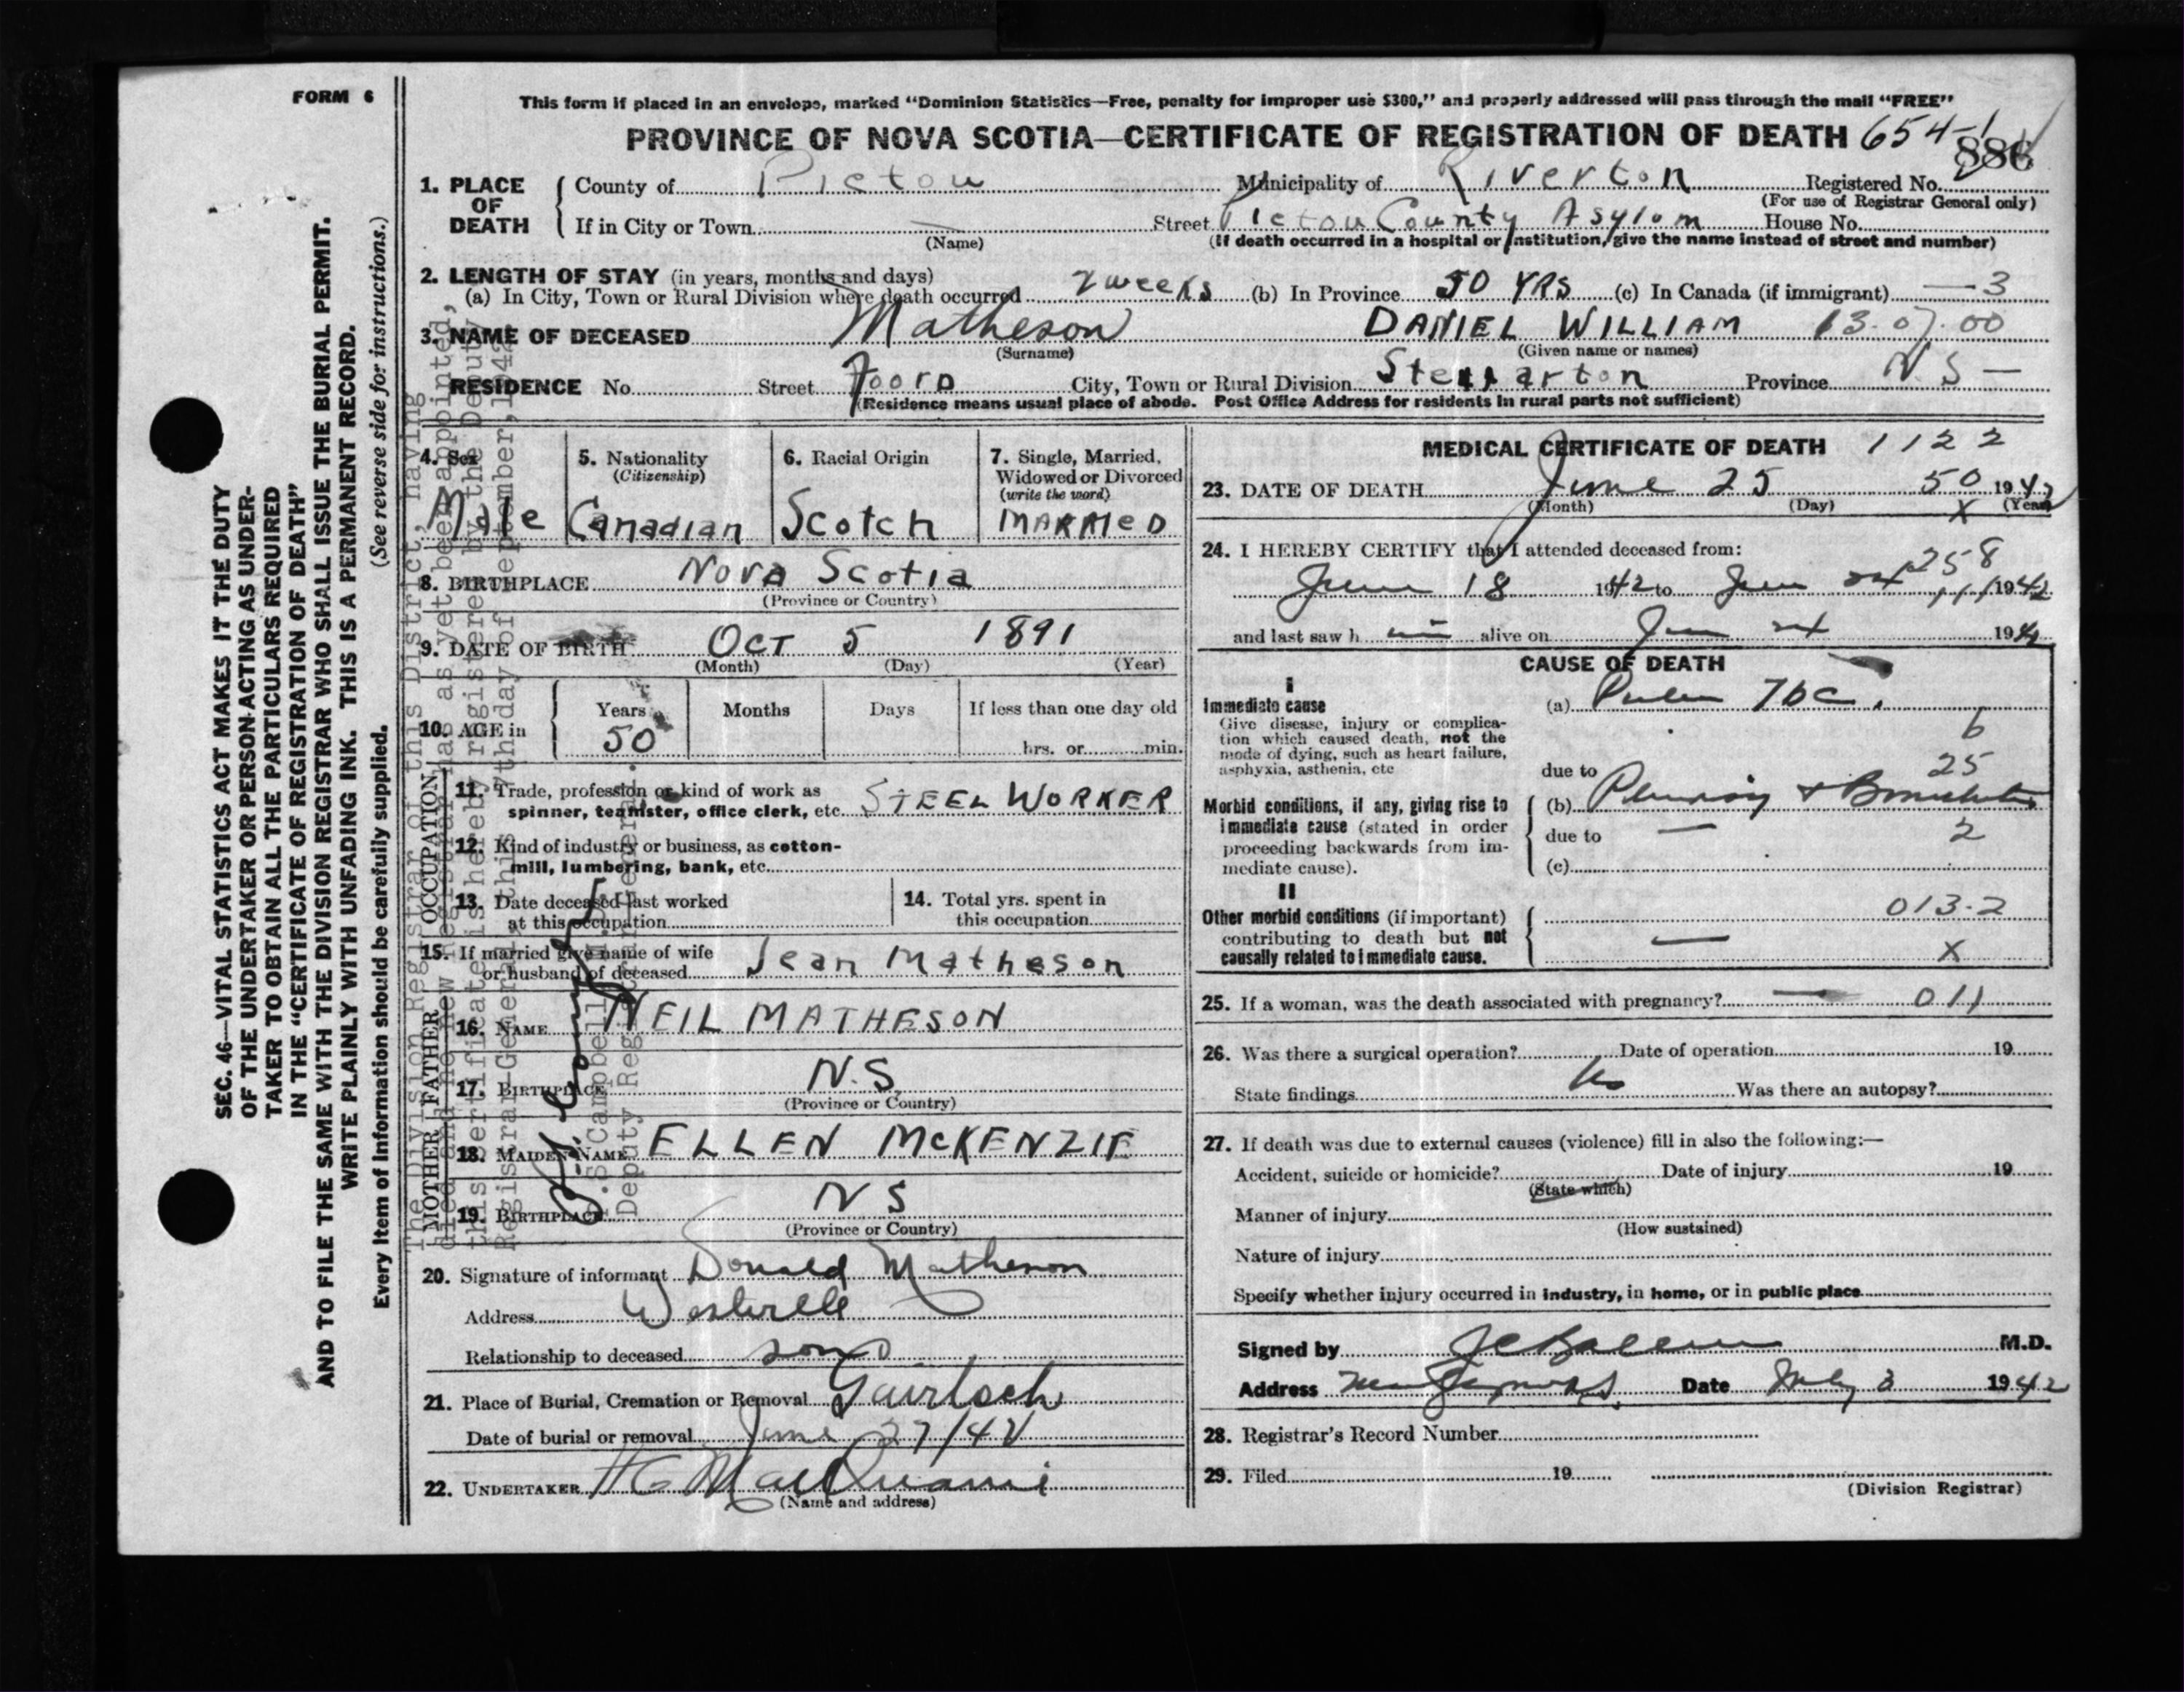 FORM 6
This form if placed in an envelope, marked "Dominion Statistics—Free, penalty for improper use $300," and properly addressed will pass through the mail "FREE"
PROVINCE OF NOVA SCOTIA—CERTIFICATE OF REGISTRATION OF DEATH 654-1
886
1. PLACE OF DEATH
County of Pictou Municipality of Riverton Registered No.
(For use of Registrar General only)
If in City or Town — Street Pictou County Asylum House No.
(Name) (If death occurred in a hospital or institution, give the name instead of street and number)
2. LENGTH OF STAY (in years, months and days)
(a) In City, Town or Rural Division where death occurred 2 weeks (b) In Province 50 YRS (c) In Canada (if immigrant) — 3
3. NAME OF DECEASED Matheson DANIEL WILLIAM 13.07.00
(Surname) (Given name or names)
RESIDENCE No. Street Foord City, Town or Rural Division Stellarton Province N S —
(Residence means usual place of abode. Post Office Address for residents in rural parts not sufficient)
4. Sex 5. Nationality 6. Racial Origin 7. Single, Married,
(Citizenship) Widowed or Divorced
(write the word)
Male Canadian Scotch MARRIED
8. BIRTHPLACE Nova Scotia
(Province or Country)
9. DATE OF BIRTH OCT 5 1891
(Month) (Day) (Year)
10. AGE in Years Months Days If less than one day old
50 hrs. or min.
OCCUPATION
11. Trade, profession or kind of work as
spinner, teamster, office clerk, etc. STEEL WORKER
12. Kind of industry or business, as cotton-
mill, lumbering, bank, etc.
13. Date deceased last worked
at this occupation
14. Total yrs. spent in
this occupation
15. If married give name of wife
or husband of deceased Jean Matheson
FATHER
16. NAME NEIL MATHESON
17. BIRTHPLACE N.S.
(Province or Country)
MOTHER
18. MAIDEN NAME ELLEN McKENZIE
19. BIRTHPLACE N S
(Province or Country)
20. Signature of informant Donald Matheson
Address Westville
Relationship to deceased son
21. Place of Burial, Cremation or Removal Gairloch
Date of burial or removal June 27/42
22. UNDERTAKER H G MacQuarrie
(Name and address)
MEDICAL CERTIFICATE OF DEATH 1122
23. DATE OF DEATH June 25 50 1942
(Month) (Day) X (Year)
24. I HEREBY CERTIFY that I attended deceased from:
258
June 18 1942 to June 24 1942
and last saw h im alive on June 24 1942
CAUSE OF DEATH
I
Immediate cause
Give disease, injury or complica-
tion which caused death, not the
mode of dying, such as heart failure,
asphyxia, asthenia, etc
(a) Pulm Tbc.
6
25
due to
Morbid conditions, if any, giving rise to
immediate cause (stated in order
proceeding backwards from im-
mediate cause).
(b) Pleurisy + Bronchitis
due to — 2
(c)
II
Other morbid conditions (if important)
contributing to death but not
causally related to immediate cause.
013.2
— X
25. If a woman, was the death associated with pregnancy? — 011
26. Was there a surgical operation? Date of operation 19
State findings No Was there an autopsy?
27. If death was due to external causes (violence) fill in also the following:—
Accident, suicide or homicide? Date of injury 19
(State which)
Manner of injury
(How sustained)
Nature of injury
Specify whether injury occurred in industry, in home, or in public place
Signed by M.D.
Address Date July 3 1942
28. Registrar's Record Number
29. Filed 19
(Division Registrar)
SEC. 46—VITAL STATISTICS ACT MAKES IT THE DUTY
OF THE UNDERTAKER OR PERSON ACTING AS UNDER-
TAKER TO OBTAIN ALL THE PARTICULARS REQUIRED
IN THE "CERTIFICATE OF REGISTRATION OF DEATH"
AND TO FILE THE SAME WITH THE DIVISION REGISTRAR WHO SHALL ISSUE THE BURIAL PERMIT.
WRITE PLAINLY WITH UNFADING INK. THIS IS A PERMANENT RECORD.
(See reverse side for instructions.)
Every item of information should be carefully supplied.
The Division Registrar of this District, having
died and no new Registrar has as yet been appointed,
this certificate is hereby registered by the Deputy
Registrar General, this 7th day of September, 1942.
Deputy Registrar General.